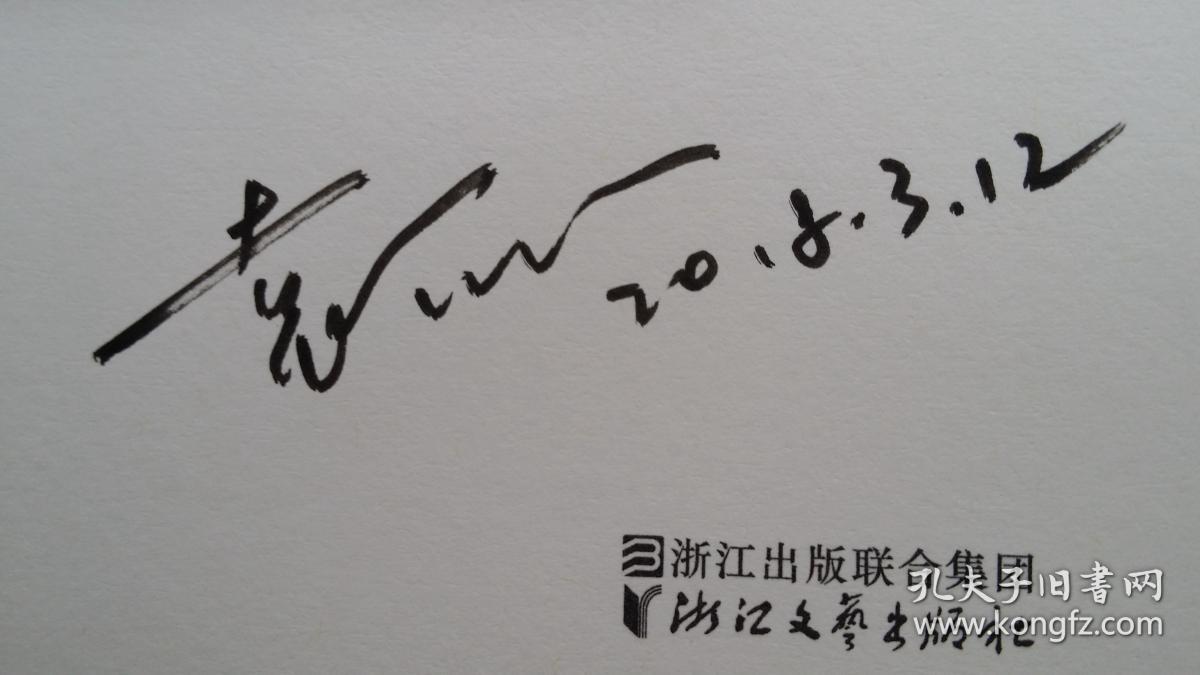 2018.3.12
浙江出版联合集团
浙江文艺出版社
孔夫子旧书网
www.kongfz.com